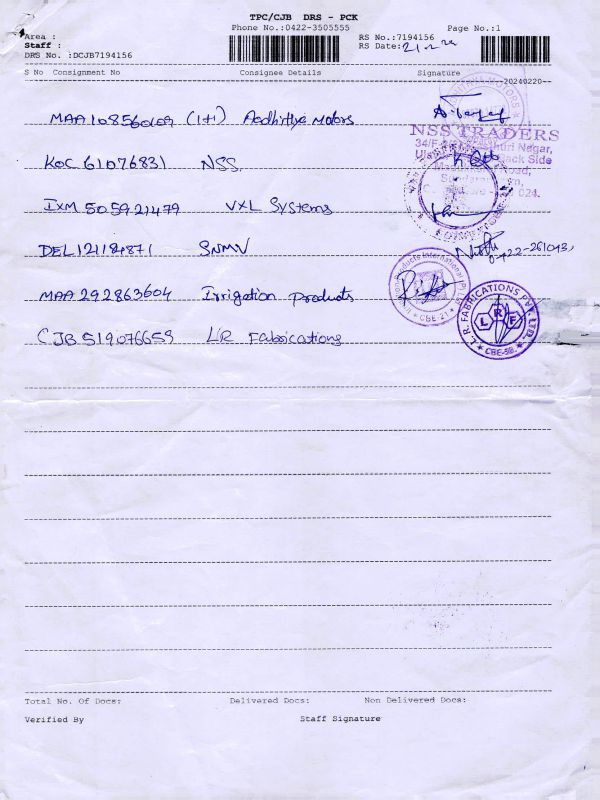 TPC/CJB DRS - PCK
Phone No.:0422-3505555 Page No.:1
Area : RS No.:7194156
Staff : RS Date:
DRS No. :DCJB7194156
S No Consignment No Consignee Details Signature
20240220
(1+1) Aadhithya Motors
NSS TRADERS
KOC 61076831 NSS.
024.
IXM 505921479 VXL Systems
DEL 121184871 SNMV
MAA 292863604 Irrigation products
Products International
CBE-21
CJB 519076659 LR Fabrications
L.R. FABRICATIONS PVT. LTD.
LRF
Total No. Of Docs: Delivered Docs: Non Delivered Docs:
Verified By Staff Signature